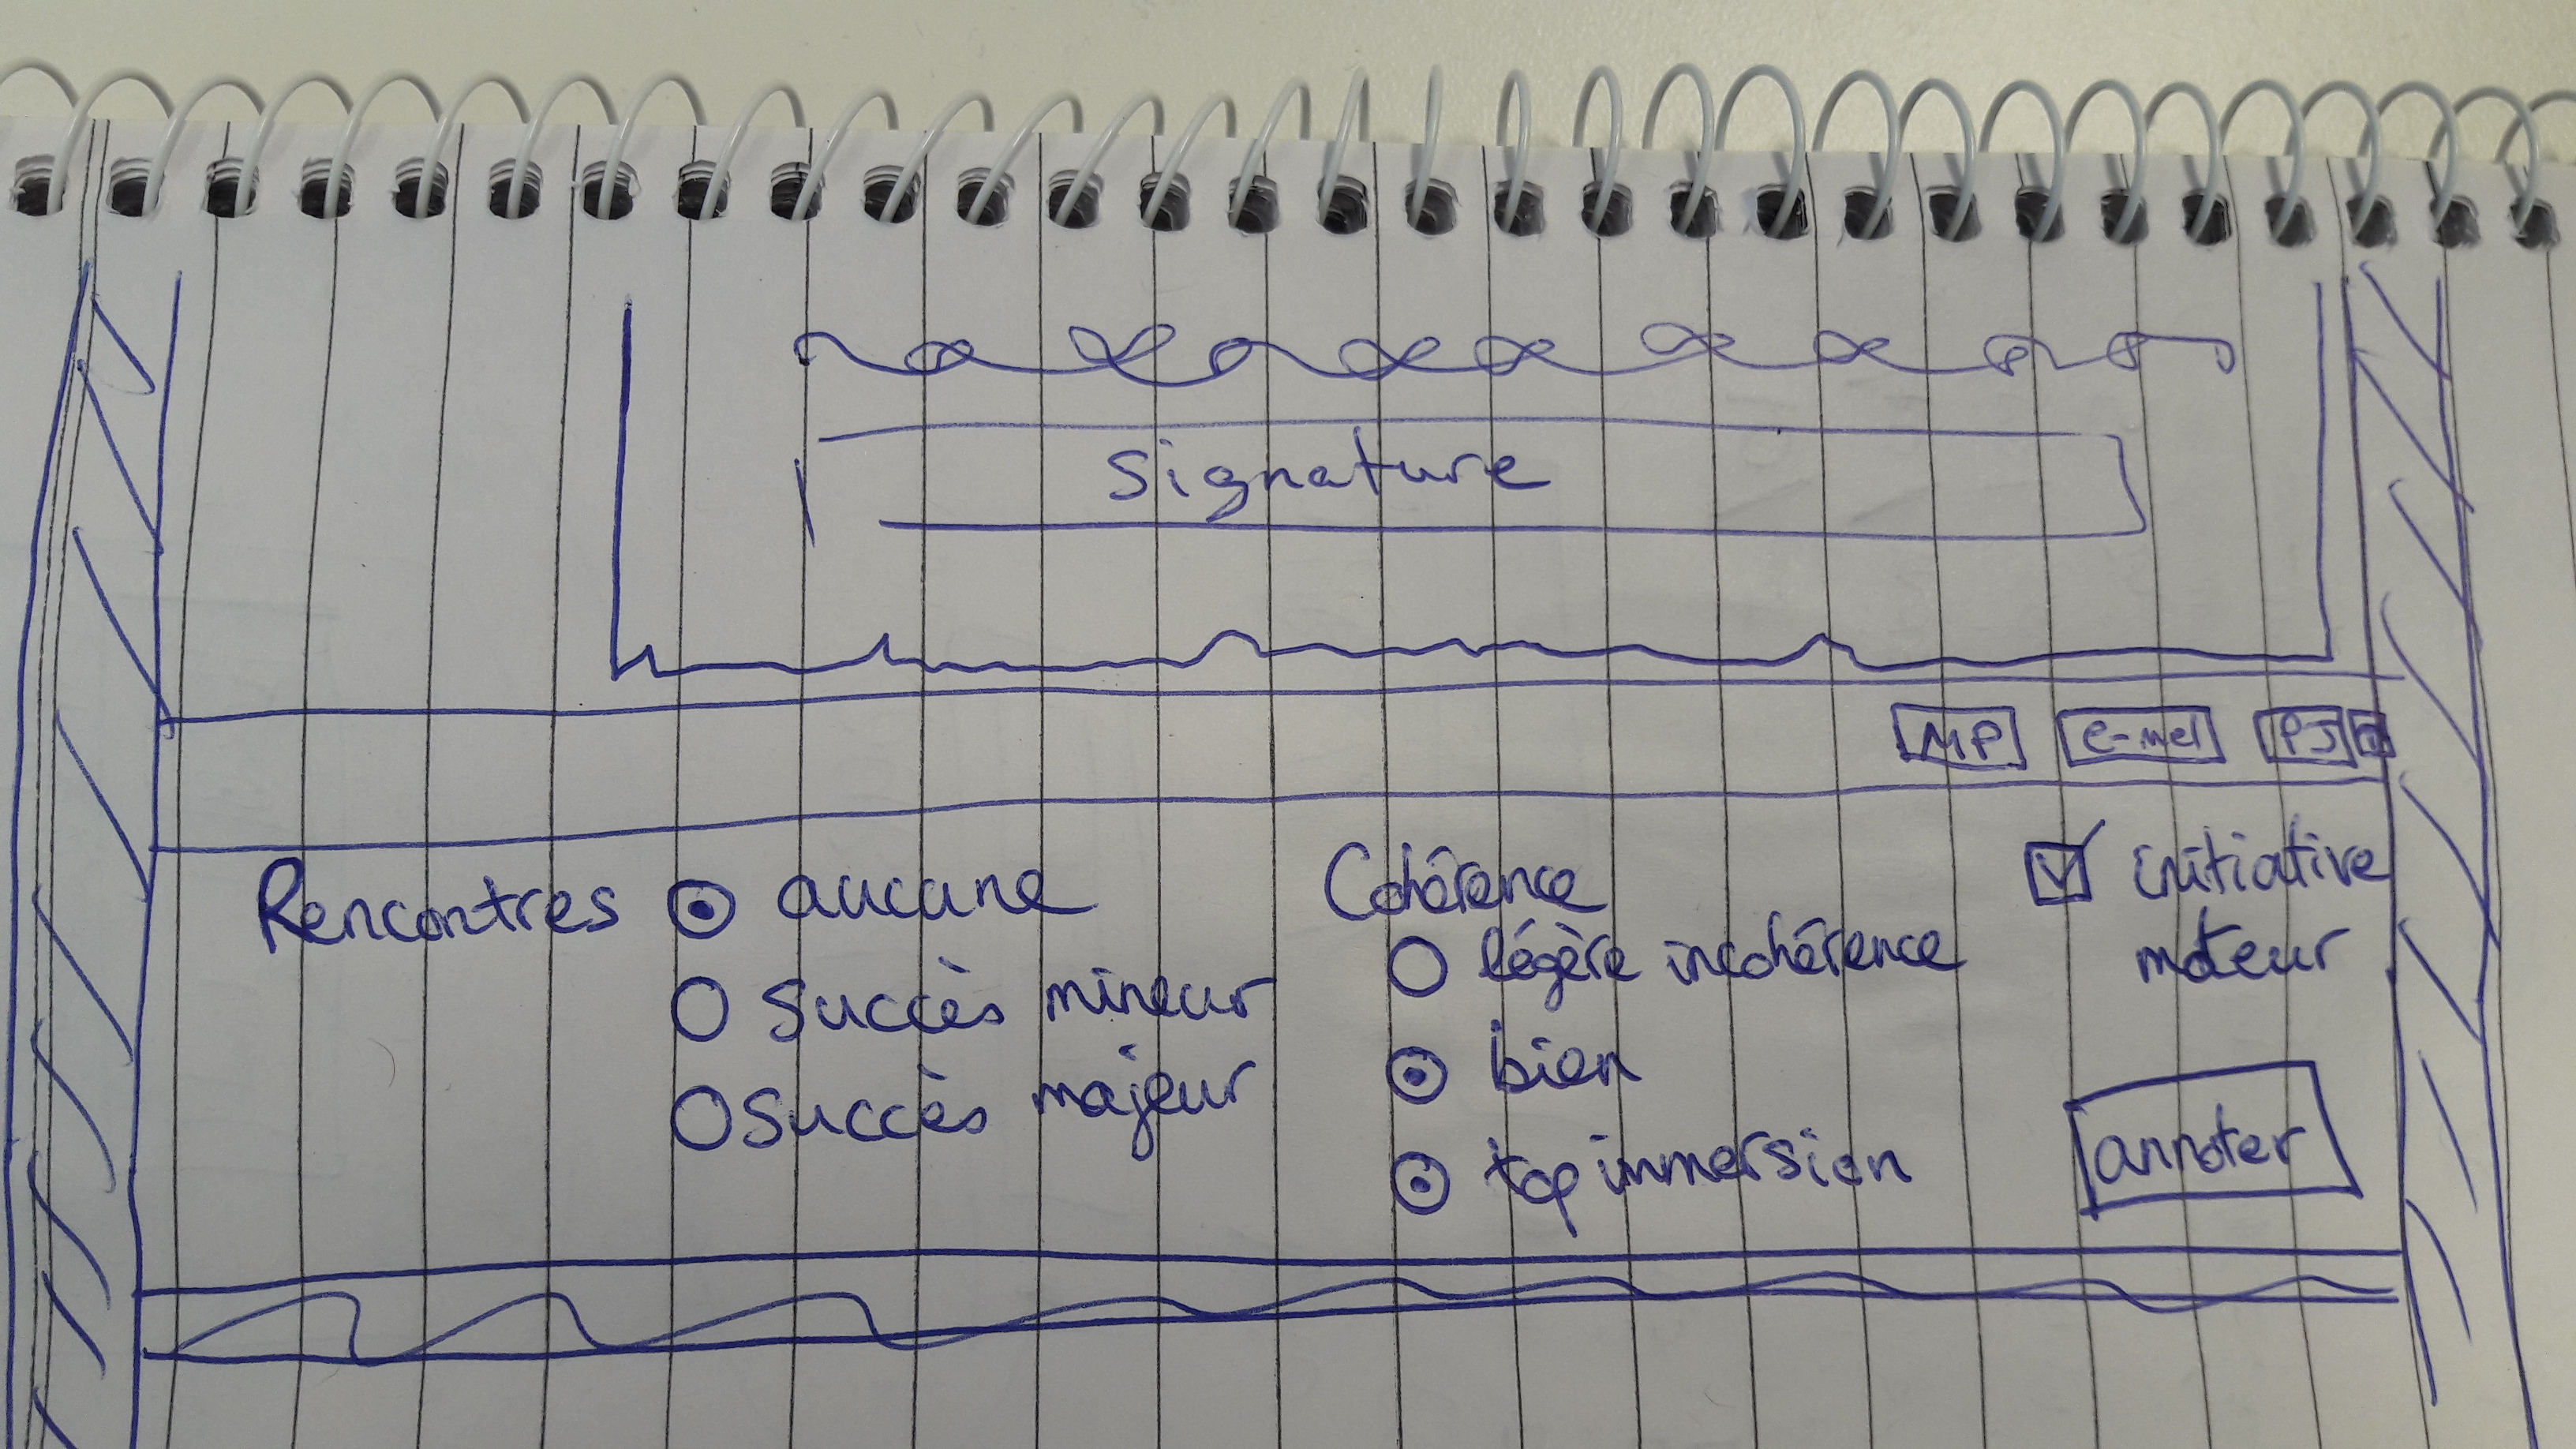 Signature
MP e-mel PJ
Rencontres aucune
succès mineur
succès majeur
Cohérence
légère incohérence
bien
top immersion
initiative
moteur
annoter